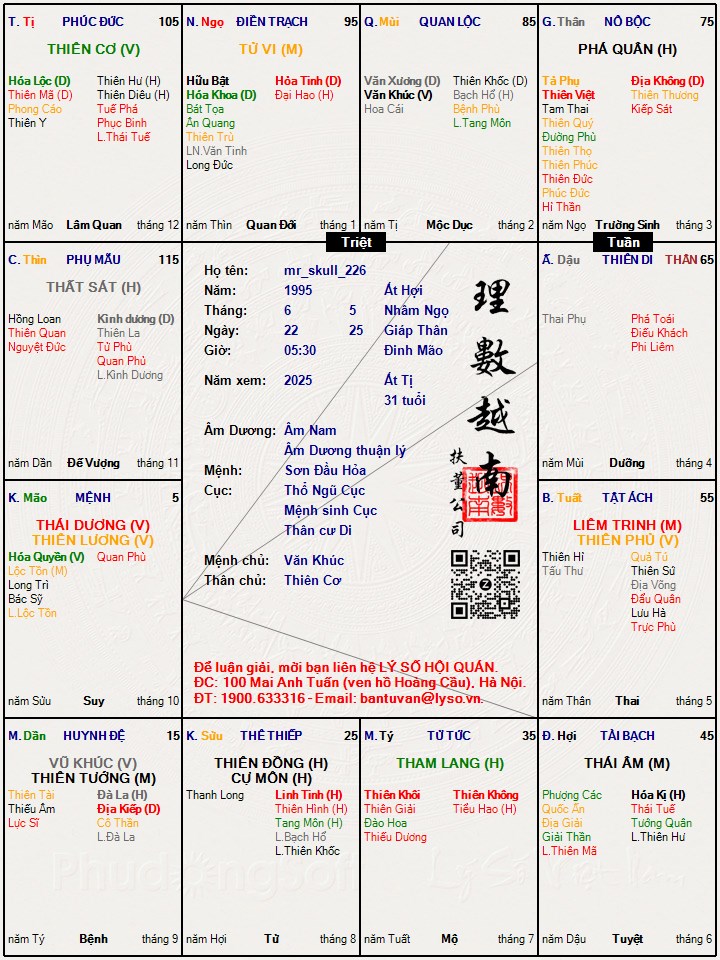 T. Tị PHÚC ĐỨC 105
THIÊN CƠ (V)
Hóa Lộc (D) Thiên Hư (H)
Thiên Mã (D) Thiên Diêu (H)
Phong Cáo Tuế Phá
Thiên Y Phục Binh
L.Thái Tuế
năm Mão Lâm Quan tháng 12
N. Ngọ ĐIỀN TRẠCH 95
TỬ VI (M)
Hữu Bật Hỏa Tinh (D)
Hóa Khoa (D) Đại Hao (H)
Bát Tọa
Ân Quang
Thiên Trù
LN.Văn Tinh
Long Đức
năm Thìn Quan Đới tháng 1
Q. Mùi QUAN LỘC 85
Văn Xương (D) Thiên Khốc (D)
Văn Khúc (V) Bạch Hổ (H)
Hoa Cái Bệnh Phù
L.Tang Môn
năm Tị Mộc Dục tháng 2
G. Thân NÔ BỘC 75
PHÁ QUÂN (H)
Tả Phụ Địa Không (D)
Thiên Việt Thiên Thương
Tam Thai Kiếp Sát
Thiên Quý
Đường Phù
Thiên Thọ
Thiên Phúc
Thiên Đức
Phúc Đức
Hỉ Thần
năm Ngọ Trường Sinh tháng 3
Triệt
Tuần
C. Thìn PHỤ MẪU 115
THẤT SÁT (H)
Hồng Loan Kình dương (D)
Thiên Quan Thiên La
Nguyệt Đức Tử Phù
Quan Phủ
L.Kình Dương
năm Dần Đế Vượng tháng 11
Họ tên: mr_skull_226
Năm: 1995 Ất Hợi
Tháng: 6 5 Nhâm Ngọ
Ngày: 22 25 Giáp Thân
Giờ: 05:30 Đinh Mão
Năm xem: 2025 Ất Tị
31 tuổi
Âm Dương: Âm Nam
Âm Dương thuận lý
Mệnh: Sơn Đầu Hỏa
Cục: Thổ Ngũ Cục
Mệnh sinh Cục
Thân cư Di
Mệnh chủ: Văn Khúc
Thân chủ: Thiên Cơ
理數越南
扶董公司
Z
Để luận giải, mời bạn liên hệ LÝ SỐ HỘI QUÁN.
ĐC: 100 Mai Anh Tuấn (ven hồ Hoàng Cầu), Hà Nội.
ĐT: 1900.633316 - Email: bantuvan@lyso.vn.
Ấ. Dậu THIÊN DI THÂN 65
Thai Phụ Phá Toái
Điếu Khách
Phi Liêm
năm Mùi Dưỡng tháng 4
K. Mão MỆNH 5
THÁI DƯƠNG (V)
THIÊN LƯƠNG (V)
Hóa Quyền (V) Quan Phù
Lộc Tồn (M)
Long Trì
Bác Sỹ
L.Lộc Tồn
năm Sửu Suy tháng 10
B. Tuất TẬT ÁCH 55
LIÊM TRINH (M)
THIÊN PHỦ (V)
Thiên Hỉ Quả Tú
Tấu Thư Thiên Sứ
Địa Võng
Đẩu Quân
Lưu Hà
Trực Phù
năm Thân Thai tháng 5
M. Dần HUYNH ĐỆ 15
VŨ KHÚC (V)
THIÊN TƯỚNG (M)
Thiên Tài Đà La (H)
Thiếu Âm Địa Kiếp (D)
Lực Sĩ Cô Thần
L.Đà La
năm Tý Bệnh tháng 9
K. Sửu THÊ THIẾP 25
THIÊN ĐỒNG (H)
CỰ MÔN (H)
Thanh Long Linh Tinh (H)
Thiên Hình (H)
Tang Môn (H)
L.Bạch Hổ
L.Thiên Khốc
năm Hợi Tử tháng 8
M. Tý TỬ TỨC 35
THAM LANG (H)
Thiên Khôi Thiên Không
Thiên Giải Tiểu Hao (H)
Đào Hoa
Thiếu Dương
năm Tuất Mộ tháng 7
Đ. Hợi TÀI BẠCH 45
THÁI ÂM (M)
Phượng Các Hóa Kị (H)
Quốc Ấn Thái Tuế
Địa Giải Tướng Quân
Giải Thần L.Thiên Hư
L.Thiên Mã
năm Dậu Tuyệt tháng 6